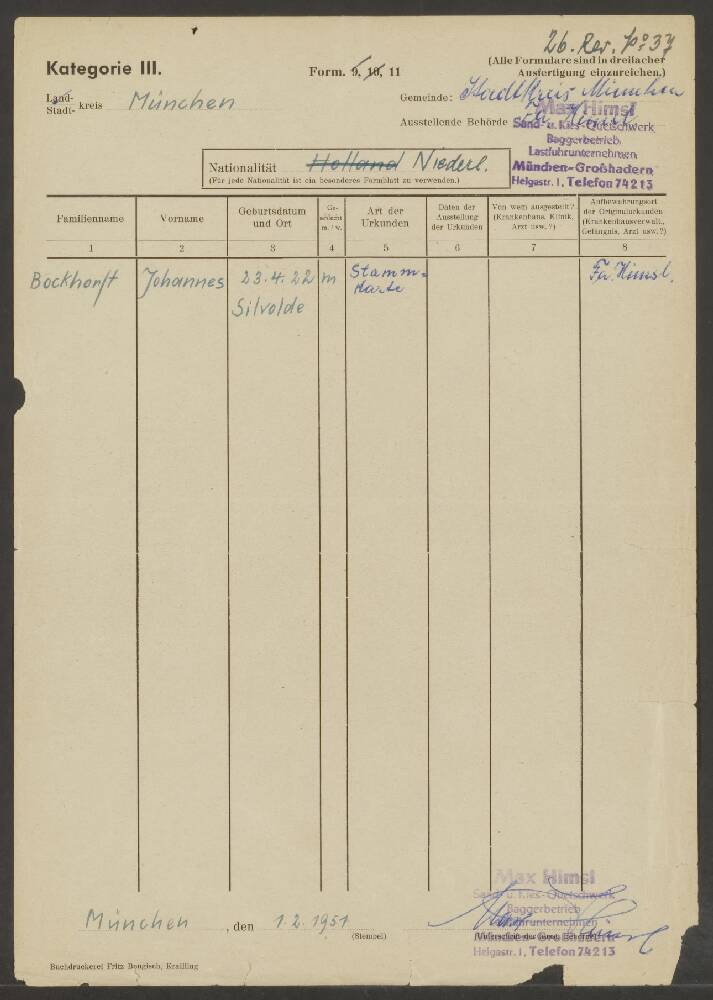 26. Rev. No 37
Kategorie III.
Form. 9, 10, 11
(Alle Formulare sind in dreifacher
Ausfertigung einzureichen.)
Land-
Stadt- kreis München
Gemeinde: Stadtkreis München
Ausstellende Behörde Fa. Himsl
Max Himsl
Sand- u. Kies-Quetschwerk
Baggerbetrieb
Lastfuhrunternehmen
München-Großhadern
Helgastr. 1, Telefon 74213
Nationalität Holland Niederl.
(Für jede Nationalität ist ein besonderes Formblatt zu verwenden.)
Familienname
Vorname
Geburtsdatum
und Ort
Ge-
schlecht
m. / w.
Art der
Urkunden
Daten der
Ausstellung
der Urkunden
Von wem ausgestellt?
(Krankenhaus, Klinik,
Arzt usw.?)
Aufbewahrungsort
der Originalurkunden
(Krankenhausverwalt.,
Gefängnis, Arzt usw.?)
1 2 3 4 5 6 7 8
Bockhorst Johannes 23.4.22 m Stamm- Fa. Himsl.
Silvolde karte
Max Himsl
Sand- u. Kies-Quetschwerk
Baggerbetrieb
Lastfuhrunternehmen
München-Großhadern
Helgastr. 1, Telefon 74213
München, den 1.2.1951
(Stempel)
Buchdruckerei Fritz Bengisch, Krailling